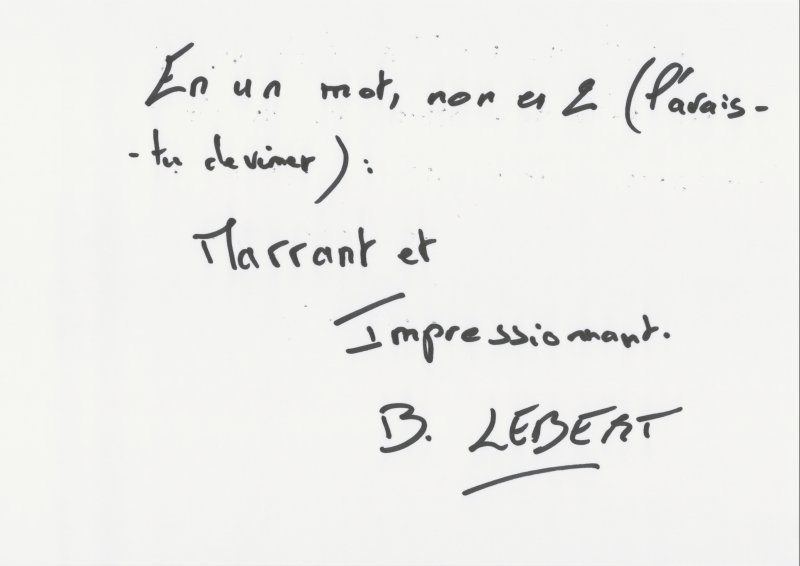 En un mot, non en 2 (l'avais-
-tu deviner) :
Marrant et
Impressionnant.
B. LEBERT